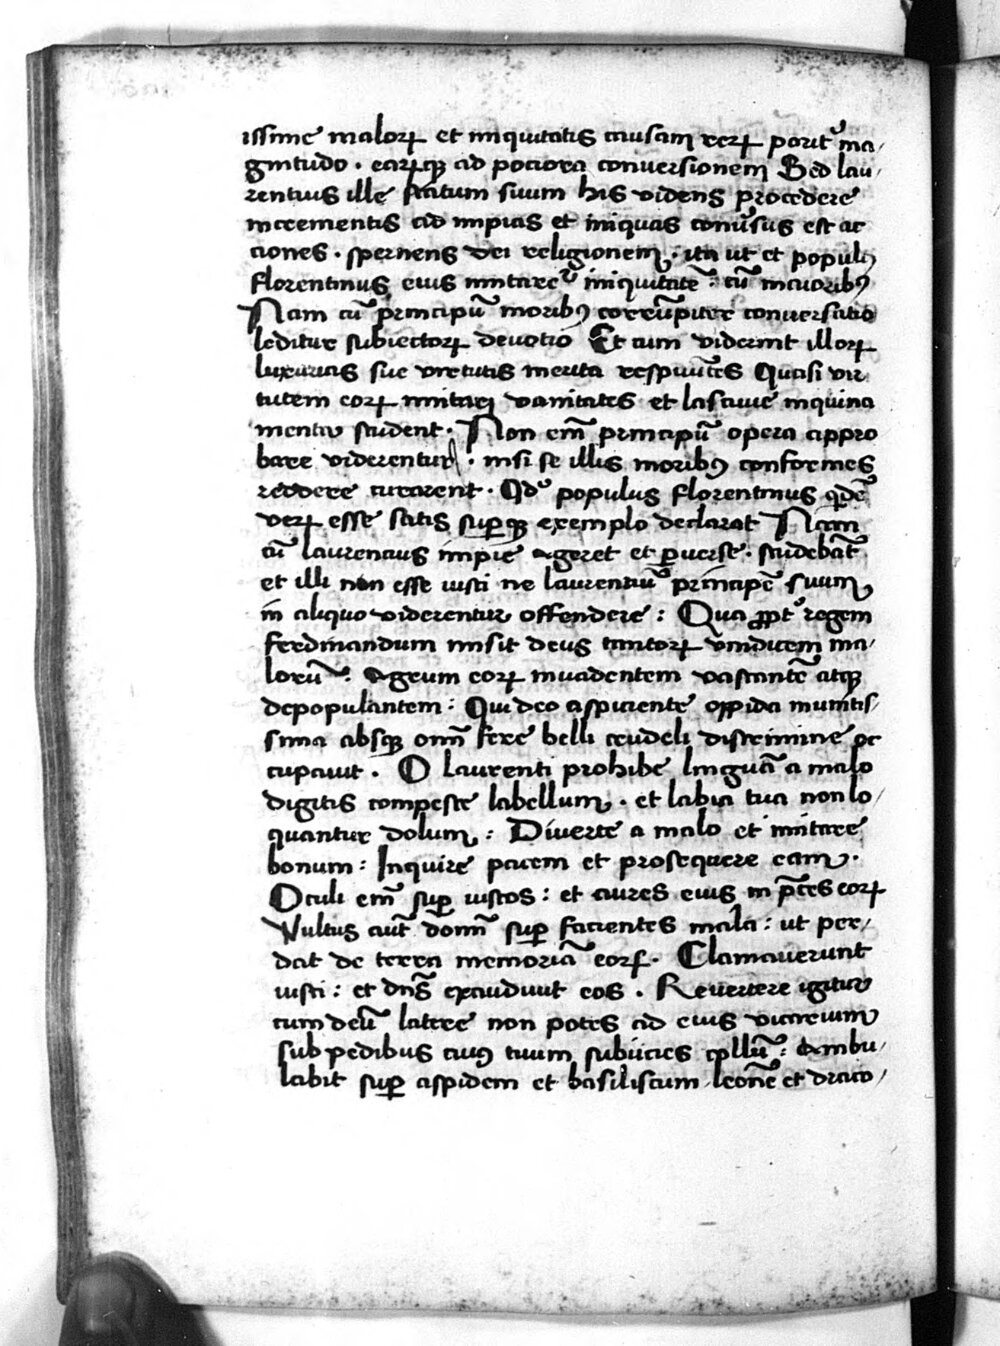 issime maloꝝ et iniquitatis causam reꝝ parit᷑ ma/
gnitudo · earūqꝫ ad pociora conversionem Sed lau/
rentius ille statum suum his videns procedere
incrementis ad impias et iniquas conv̄sus est ac
ciones · spernens dei religionem · ita ut et populꝰ
florentinus eius imitare᷑ iniquitatē : cū maioribꝰ
Nam cū principū moribꝰ corrūpitur conversatio
leditur subiectoꝝ devotio Et cum viderint illoꝝ
luxurias sue virtutis merita respuūtes Quasi vir
tutem eoꝝ imitari vanitates et lascivie inquina
menta student · Non em̄ principū opera appro
bare viderentur · nisi se illis moribꝰ conformes
reddere curarent · Qd᷑ populus florentinus qdē
veꝝ esse satis suꝑqꝫ exemplo declarat Nam
cū laurencius impie ageret et ꝑverse · studebāt
et illi non esse iusti ne laurentiū principē suum
in aliquo viderentur offendere : Qua ꝓpt᷑ regem
ferdinandum misit deus tantoꝝ vindicem ma/
lorū · Agrum eoꝝ invadentem vastantē atqꝫ
depopulantem : Qui deo aspirante oppida munitis/
sima absqꝫ om̄i fere belli crudeli discrimine oc
cupavit · O laurenti prohibe linguā a malo
digitis compesce labellum · et labia tua non lo/
quantur dolum : Diverte a malo et imitare
bonum : Inquire pacem et prosequere eam ·
Oculi em̄ suꝑ iustos : et aures eius in p̄ces eoꝝ
Vultus aūt dom̄i suꝑ facientes mala : ut per/
dat de terra memoriā eoꝝ · Clamaverunt
iusti : et dn̄s exaudivit eos · Revertere igitur
cum deū latere non potes ad eius vicarium
sub pedibus cuiꝰ tuum subiicies collū : Ambu/
labit suꝑ aspidem et basiliscum leonē et draco/